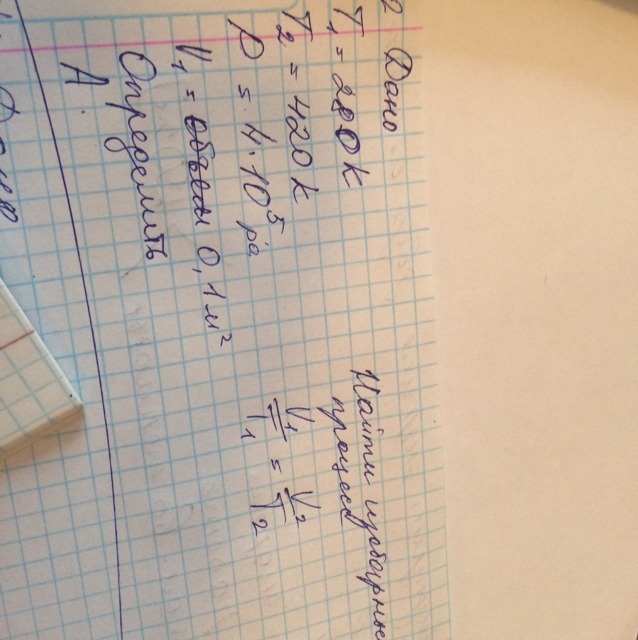 2 Дано
T₁ = 280 K
T₂ = 420 K
p = 4·10⁵ pa
V₁ = объем 0,1 м²
Определить
A.
Найти изобарные
процесс
V₁/T₁ = V₂/T₂